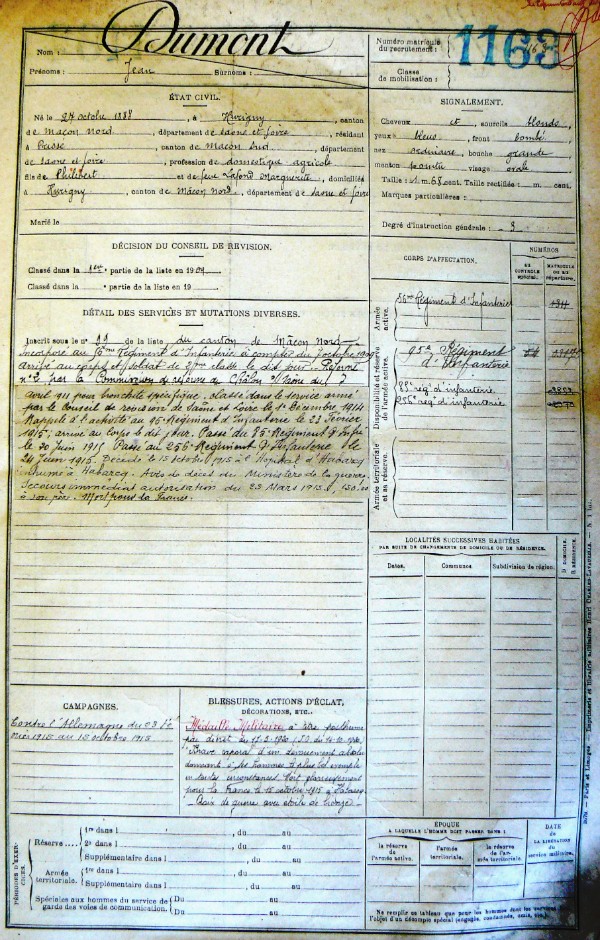 Dumont
Nom :
Prénoms : Jean Surnoms :
Numéro matricule
du recrutement : 1163
Classe
de mobilisation :
ÉTAT CIVIL.
Né le 27 octobre 1888, à Hurigny, canton
de Mâcon Nord, département de Saône et Loire, résidant
à canton de Mâcon Sud, département
de Saône et Loire, profession de domestique agricole
fils de Philibert et de feue Lafond Marguerite, domiciliés
à Hurigny, canton de Mâcon Nord, département de Saône et Loire
Marié le
SIGNALEMENT.
Cheveux et sourcils blonds,
yeux bleus, front bombé,
nez ordinaire, bouche grande,
menton pointu visage ovale
Taille : 1 m. 68 cent. Taille rectifiée : m. cent.
Marques particulières :
Degré d'instruction générale : 3
DÉCISION DU CONSEIL DE REVISION.
Classé dans la 1ère partie de la liste en 1909.
Classé dans la partie de la liste en 19
DÉTAIL DES SERVICES ET MUTATIONS DIVERSES.
Inscrit sous le n° de la liste du canton de Mâcon Nord
Incorporé au Régiment d'Infanterie à compter du 7 octobre 1909
arrivé au corps et soldat de 2ème classe le dit jour. Réformé
n° 2 par la Commission de réforme de Châlon s/ Saône du 7
avril 1911 pour bronchite spécifique. Classé dans le service armé
par le Conseil de revision de Saône et Loire le 1er Décembre 1914
Rappelé à l'activité au 95e Régiment d'Infanterie le 23 Février
1915; arrivé au Corps le dit jour. Passé du Régiment d'Inf
le 20 Juin 1915. Passé au 256e Régiment d'Infanterie le
24 Juin 1915. Décédé le 15 octobre 1915 à l'Hôpital d'Habarcq
inhumé à Habarcq. Avis de décès du Ministère de la guerre
Secours immédiat autorisation du 23 Mars 1916, 150.00
à son père. Mort pour la France.
CORPS D'AFFECTATION.
NUMÉROS
AU CONTRÔLE SPÉCIAL.
MATRICULE OU AU RÉPERTOIRE.
Armée active.
56me Régiment d'Infanterie
Disponibilité et réserve de l'armée active.
95e Régiment
d'Infanterie
rég. d'infanterie
256e rég. d'infanterie
Armée territoriale et sa réserve.
LOCALITÉS SUCCESSIVES HABITÉES
PAR SUITE DE CHANGEMENTS DE DOMICILE OU DE RÉSIDENCE.
Dates. Communes Subdivision de région. D. DOMICILE. R. RÉSIDENCE.
CAMPAGNES.
Contre l'Allemagne du 23 Fé
vrier 1915 au 15 octobre 1915
BLESSURES, ACTIONS D'ÉCLAT,
DÉCORATIONS, ETC..
Médaille Militaire à titre posthume
par décret du
"Brave caporal d'un dévouement absolu
donnant à ses hommes le plus bel exemple
en toutes circonstances. Tué glorieusement
pour la France le 15 octobre 1915 à
Croix de guerre avec étoile de bronze
PÉRIODES D'EXERCICES.
Réserve
1re dans l , du au
2e dans l , du au
Supplémentaire dans l , du au
Armée territoriale.
1re dans l , du au
Supplémentaire dans l , du au
Spéciales aux hommes du service de
gardes des voies de communication.
Du au
Du au
ÉPOQUE
A LAQUELLE L'HOMME DOIT PASSER DANS :
la réserve de l'armée active.
l'armée territoriale.
la réserve de l'armée territoriale.
DATE
DE LA LIBÉRATION
du service militaire.
Ne remplir ce tableau que pour les hommes dont les services
l'objet d'un décompte spécial (engagés, condamnés, omis, etc.).
Paris et Limoges. — Imprimerie et librairie militaires Henri Charles-Lavauzelle.